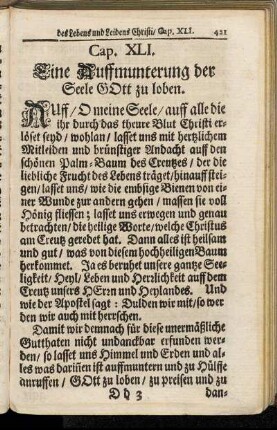 des Lebens und Leidens Christi/ Cap. XLI. 421
Cap. XLI.
Eine Auffmunterung der
Seele GOtt zu loben.
AUff/ O meine Seele/ auff alle die
ihr durch das theure Blut Christi er-
löset seyd/ wohlan/ lasset uns mit hertzlichem
Mitleiden und brünstiger Andacht auff den
schönen Palm-Baum des Creutzes/ der die
liebliche Frucht des Lebens träget/ hinauff stei-
gen/ lasset uns/ wie die embsige Bienen von ei-
ner Wunde zur andern gehen/ massen sie voll
Hönig fliessen; lasset uns erwegen und genau
betrachten/ die heilige Worte/ welche Christus
am Creutz geredet hat. Dann alles ist heilsam
und gut/ was von diesem hochheiligen Baum
herkommet. Ja es beruhet unsere gantze See-
ligkeit/ Heyl/ Leben und Herrlichkeit auff dem
Creutz unsers HErrn und Heylandes. Und
wie der Apostel sagt: Dulden wir mit/ so wer
den wir auch mit herrschen.
Damit wir demnach für diese unermäßliche
Gutthaten nicht undanckbar erfunden wer-
den/ so lasset uns Himmel und Erden und al-
les was dariñen ist auffmuntern und zu Hülffe
anruffen/ GOtt zu loben/ zu preisen und zu
Dd 3 dan-